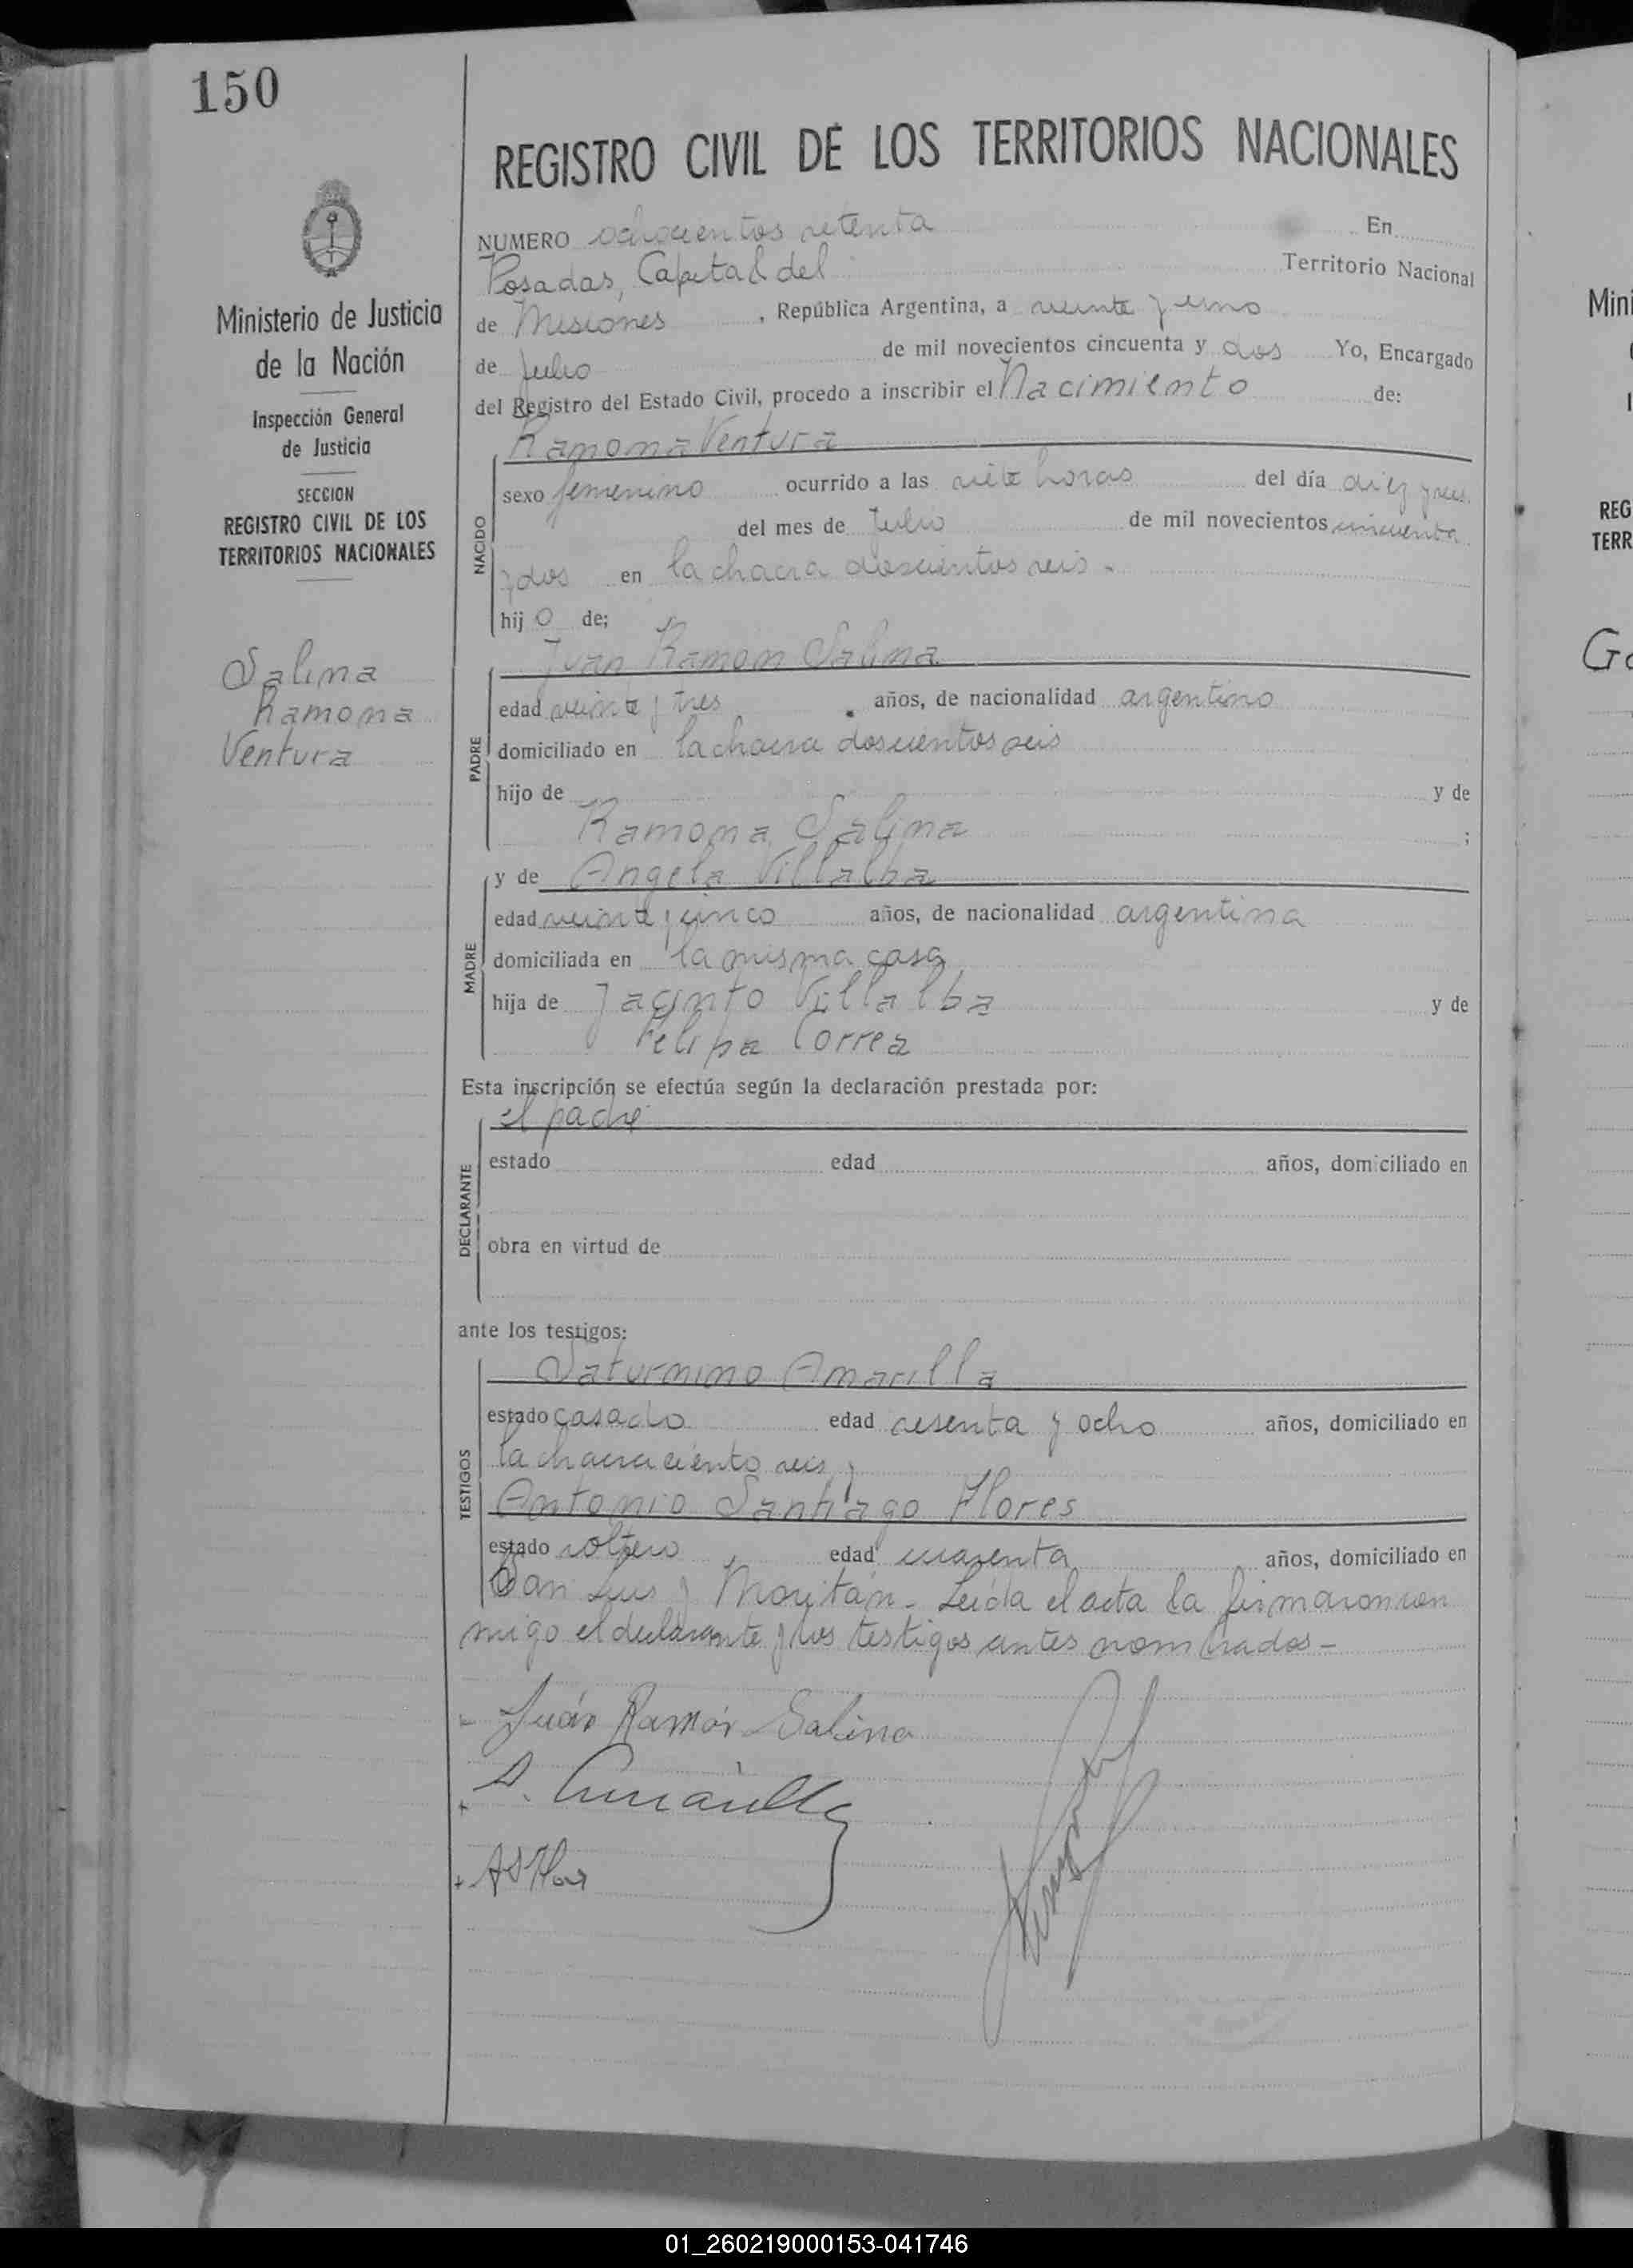 150
REGISTRO CIVIL DE LOS TERRITORIOS NACIONALES
Ministerio de Justicia
de la Nación
Inspección General
de Justicia
SECCION
REGISTRO CIVIL DE LOS
TERRITORIOS NACIONALES
Salina
Ramona
Ventura
NUMERO ochocientos setenta En
Posadas, Capital del Territorio Nacional
de Misiones , República Argentina, a veinte y uno
de Julio de mil novecientos cincuenta y dos Yo, Encargado
del Registro del Estado Civil, procedo a inscribir el Nacimiento de:
Ramona Ventura
NACIDO
sexo femenino ocurrido a las siete horas del día diez y seis
del mes de Julio de mil novecientos cincuenta
y dos en la chacra doscientos seis.
hij o de;
Juan Ramon Salina
PADRE
edad veinte y tres años, de nacionalidad argentino
domiciliado en la chacra doscientos seis
hijo de y de
Ramona Salina ;
y de Angela Villalba
MADRE
edad veinte y cinco años, de nacionalidad argentina
domiciliada en la misma casa
hija de Jacinto Villalba y de
Felipa Correa
Esta inscripción se efectúa según la declaración prestada por:
el padre
DECLARANTE
estado edad años, domiciliado en
obra en virtud de
ante los testigos:
Saturnino Amarilla
TESTIGOS
estado casado edad sesenta y ocho años, domiciliado en
la chacra ciento seis y
Antonio Santiago Flores
estado soltero edad cuarenta años, domiciliado en
San Luis y Moritán - Leída el acta la firmaron con
migo el declarante y los testigos antes nombrados -
Juán Ramón Salina
S. Amarilla
Mini
REG
TERR
01_260219000153-041746